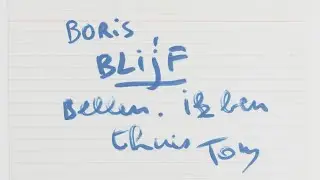 BORIS
BLijF
Bellen. ik ben
thuis Tom